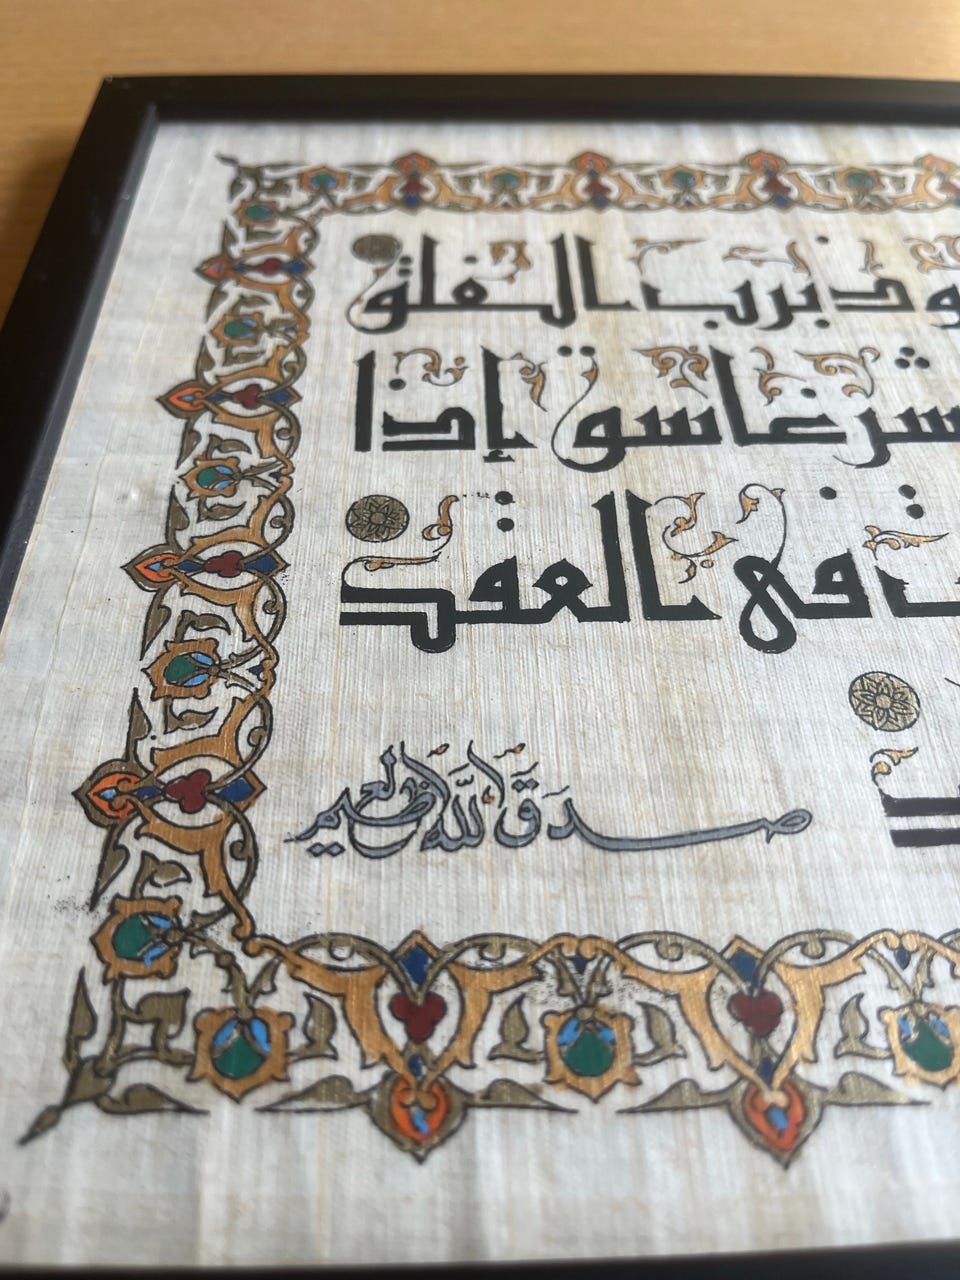 وذ برب الفلق
شر غاسق إذا
فى العقد
صدق الله العظيم